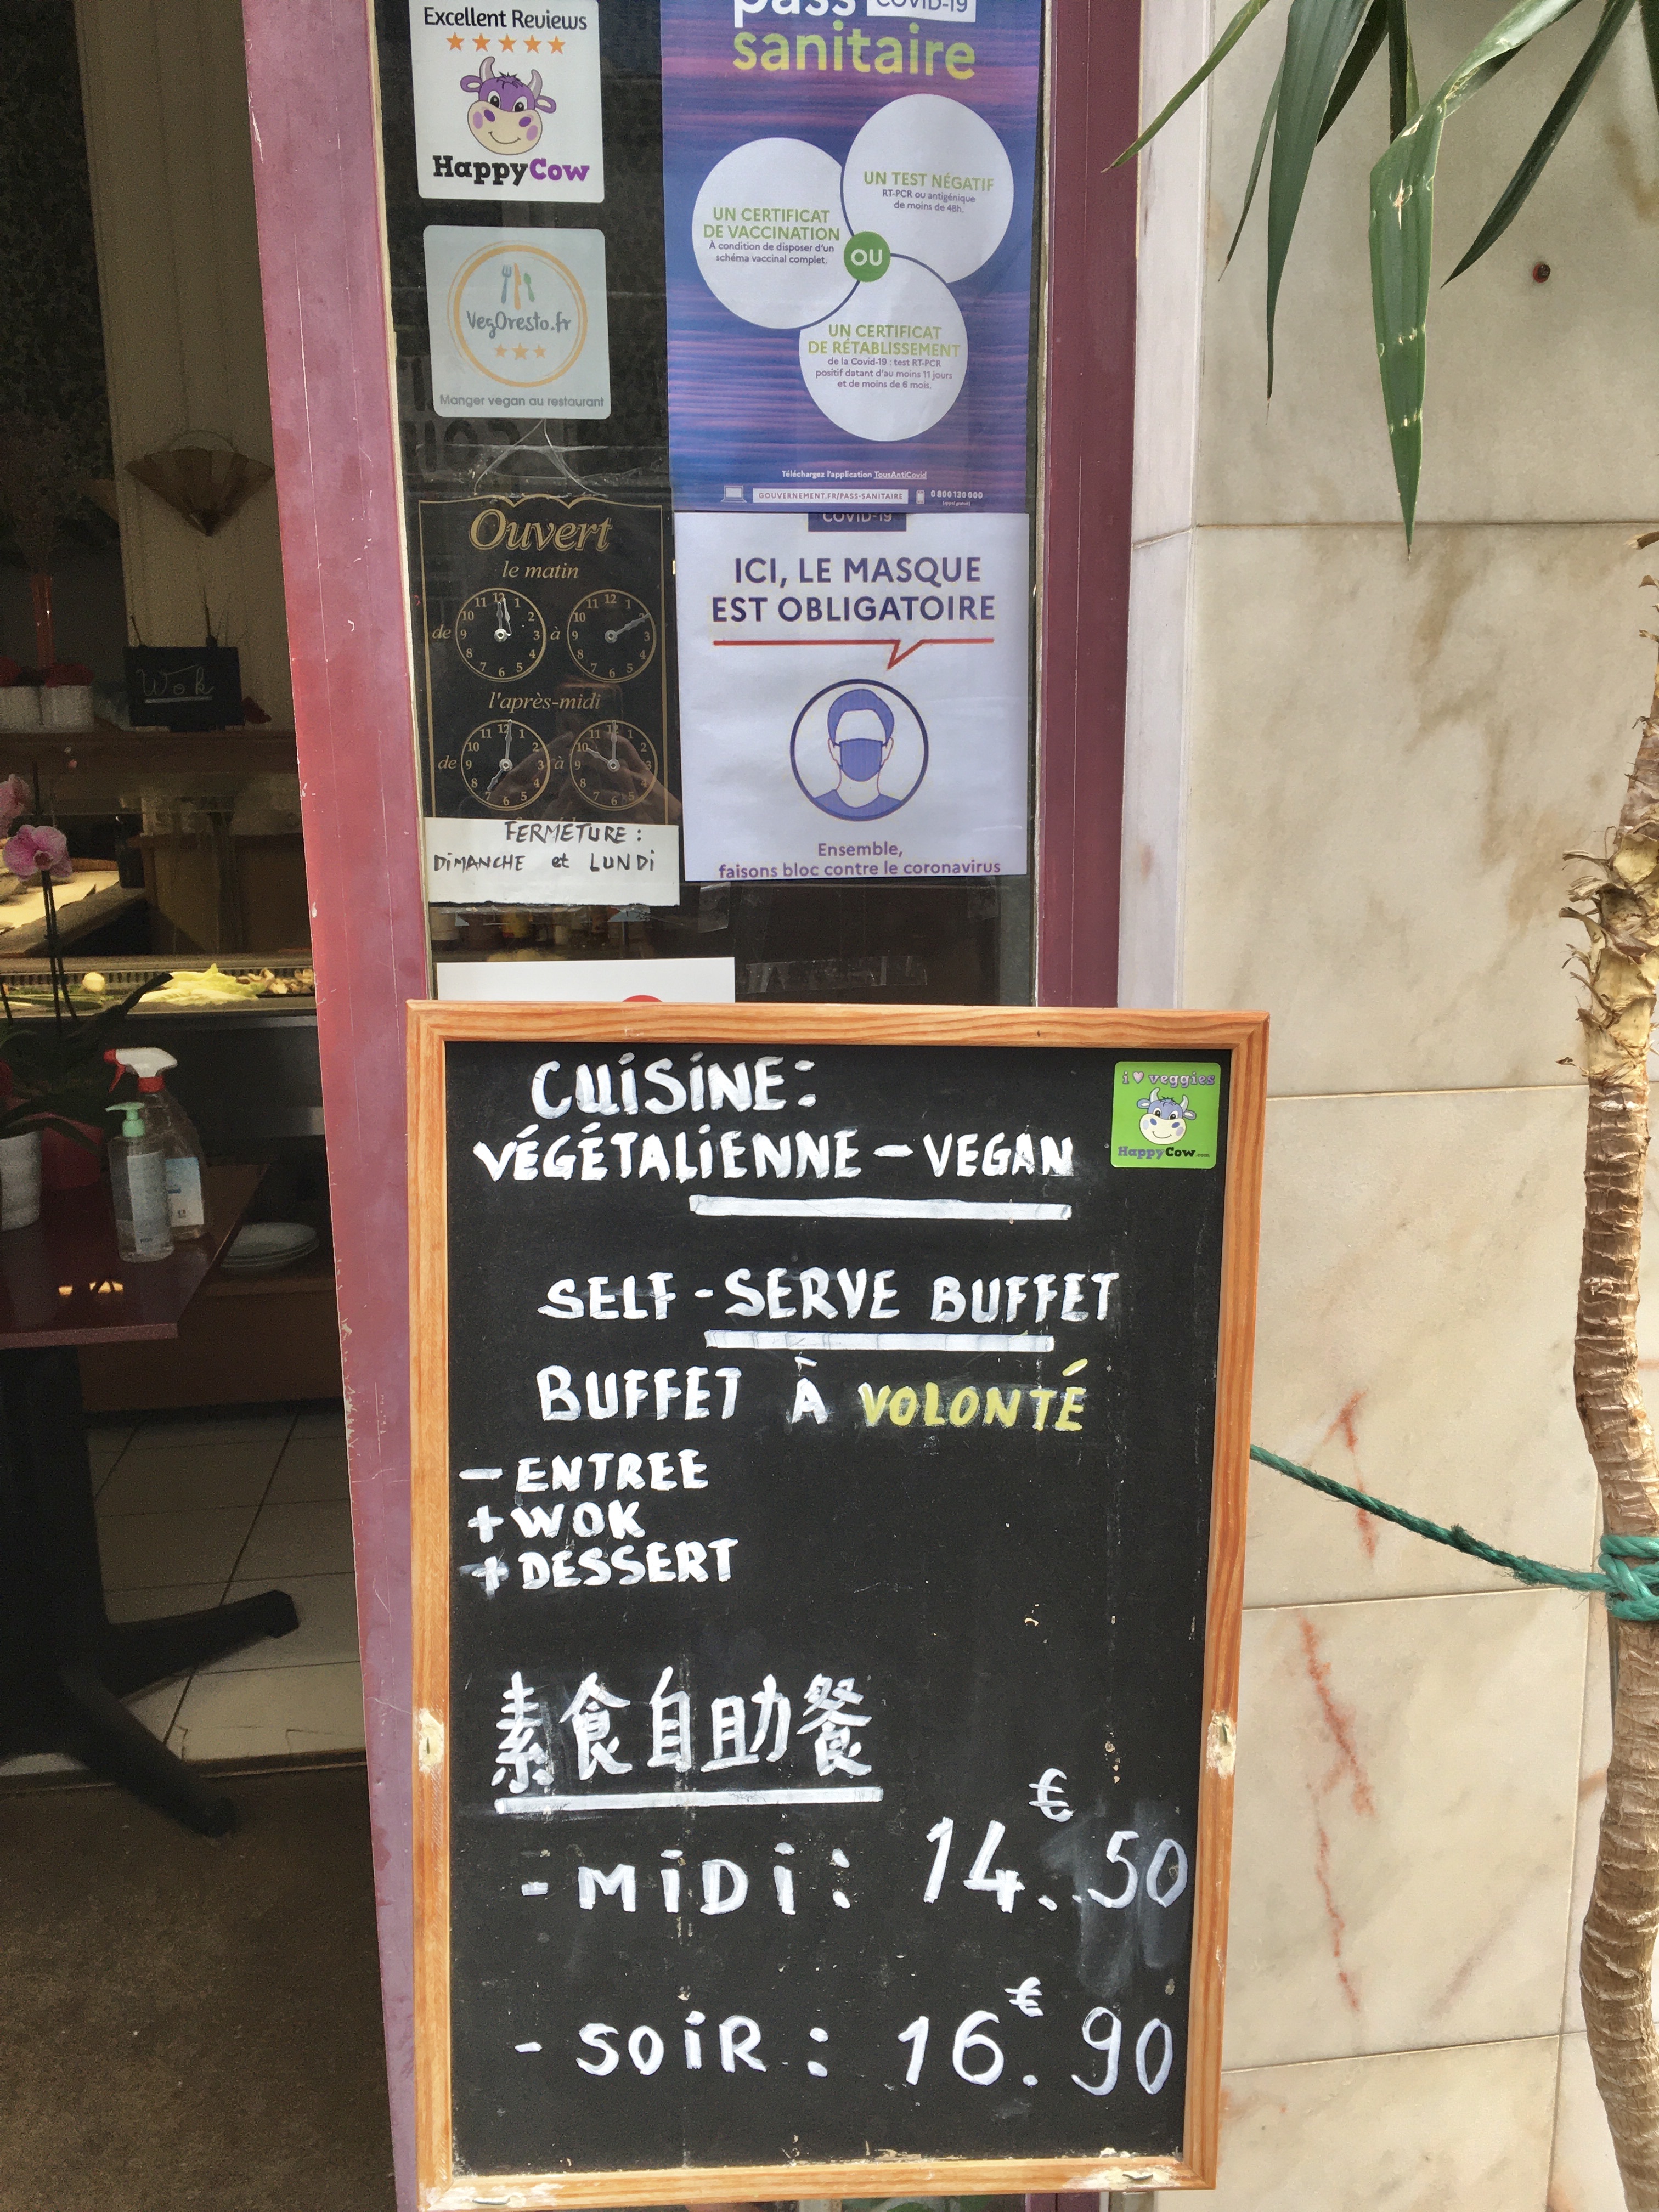 Excellent Reviews
HappyCow
VegOresto.fr
Manger vegan au restaurant
pass COVID-19
sanitaire
UN TEST NÉGATIF
RT-PCR ou antigénique
de moins de 48h.
UN CERTIFICAT
DE VACCINATION
À condition de disposer d'un
schéma vaccinal complet.
OU
UN CERTIFICAT
DE RÉTABLISSEMENT
de la Covid-19 : test RT-PCR
positif datant d'au moins 11 jours
et de moins de 6 mois.
Téléchargez l'application TousAntiCovid
GOUVERNEMENT.FR/PASS-SANITAIRE 0 800 130 000
(appel gratuit)
COVID-19
ICI, LE MASQUE
EST OBLIGATOIRE
Ensemble,
faisons bloc contre le coronavirus
Ouvert
le matin
de à
l'après-midi
de à
FERMETURE :
DIMANCHE et LUNDI
Wok
CUISINE:
VÉGÉTALIENNE - VEGAN
i ♥ veggies
HappyCow.com
SELF-SERVE BUFFET
BUFFET À VOLONTÉ
- ENTREE
+ WOK
+ DESSERT
素食自助餐
- MIDI : 14.€50
- SOIR : 16.€90